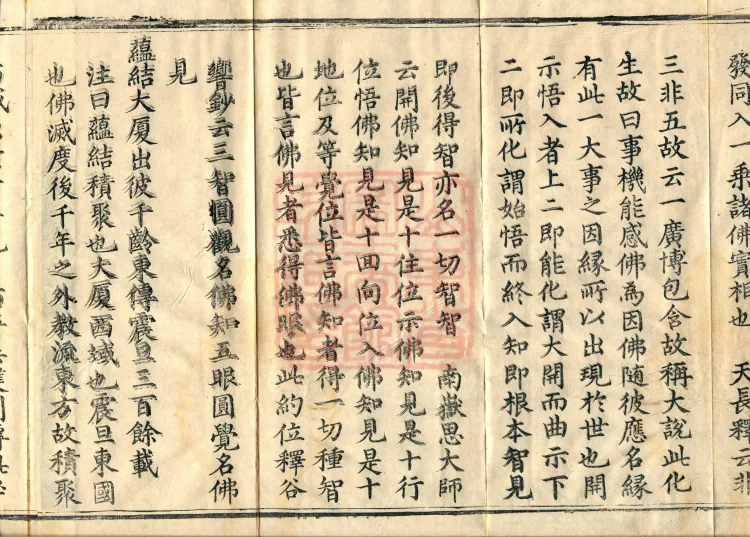 發同入一乘諸佛實相也　天長釋云非
三非五故云一廣博包含故稱大說此化
生故曰事機能感佛為因佛隨彼應名緣
有此一大事之因緣所以出現於世也開
示悟入者上二即能化謂大開而曲示下
二即所化謂始悟而終入知即根本智見
即後得智亦名一切智智　南嶽思大師
云開佛知見是十住位示佛知見是十行
位悟佛知見是十回向位入佛知見是十
地位及等覺位皆言佛知者得一切種智
也皆言佛見者悉得佛眼也此約位釋谷
響鈔云三智圓觀名佛知五眼圓覺名佛
見
蘊結大厦出彼千齡東傳震旦三百餘載
注曰蘊結積聚也大厦西域也震旦東國
也佛滅度後千年之外教流東方故積聚